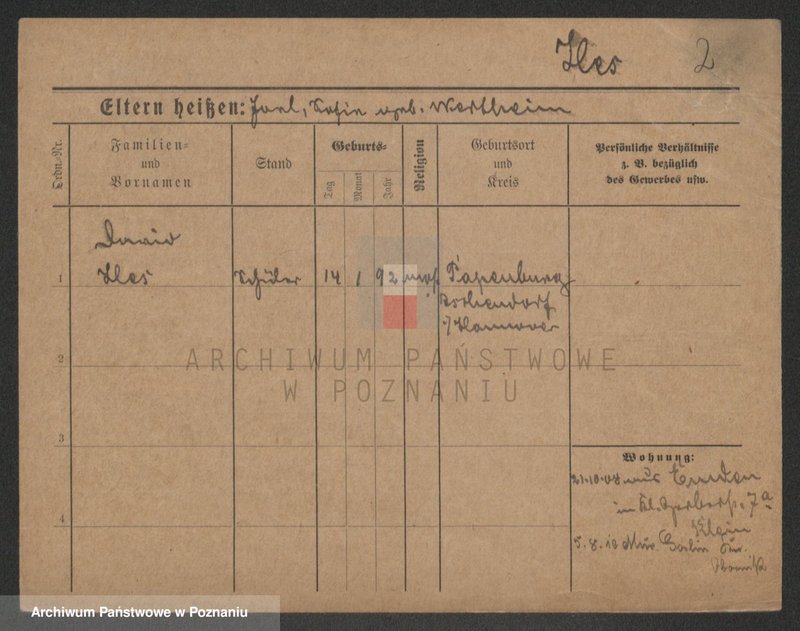 Iles 2
Eltern heißen: Joel, Sofie geb. Wertheim
Ordn.-Nr.
Familien-
und
Vornamen
Stand
Geburts-
Tag
Monat
Jahr
Religion
Geburtsort
und
Kreis
Persönliche Verhältnisse
z. B. bezüglich
des Gewerbes usw.
David
1 Iles Schüler 14 1 92 mos. Papenburg
Aschendorf
Hannover
ARCHIWUM PAŃSTWOWE
W POZNANIU
2
3
4
Wohnung:
21.10.08 aus Emden
in Kl. Gerberstr. 7a
5.8.10
Archiwum Państwowe w Poznaniu